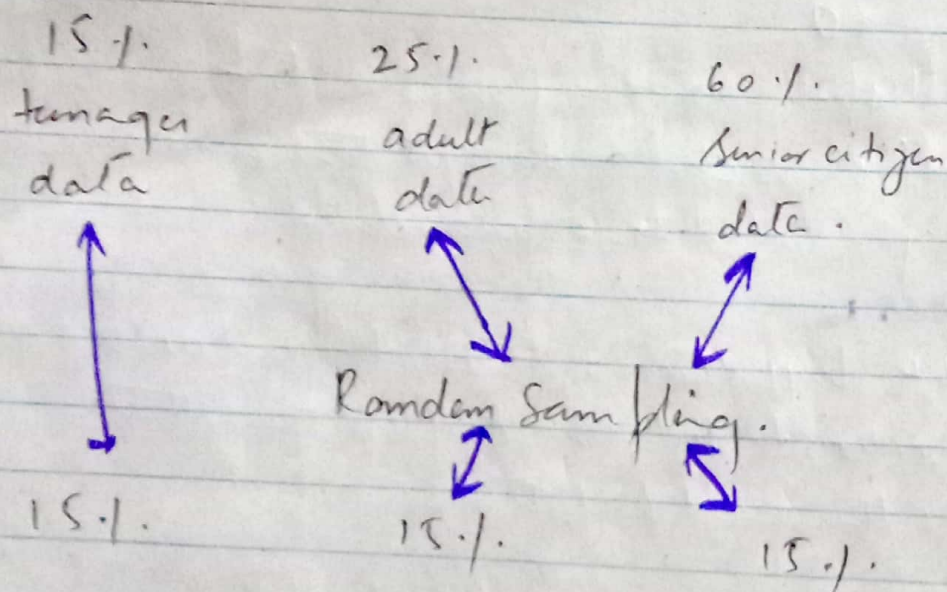 15 %.
teenager
data
25 %.
adult
data
60 %.
Senior citizen
data.
Random Sampling.
15 %.
15 %.
15 %.